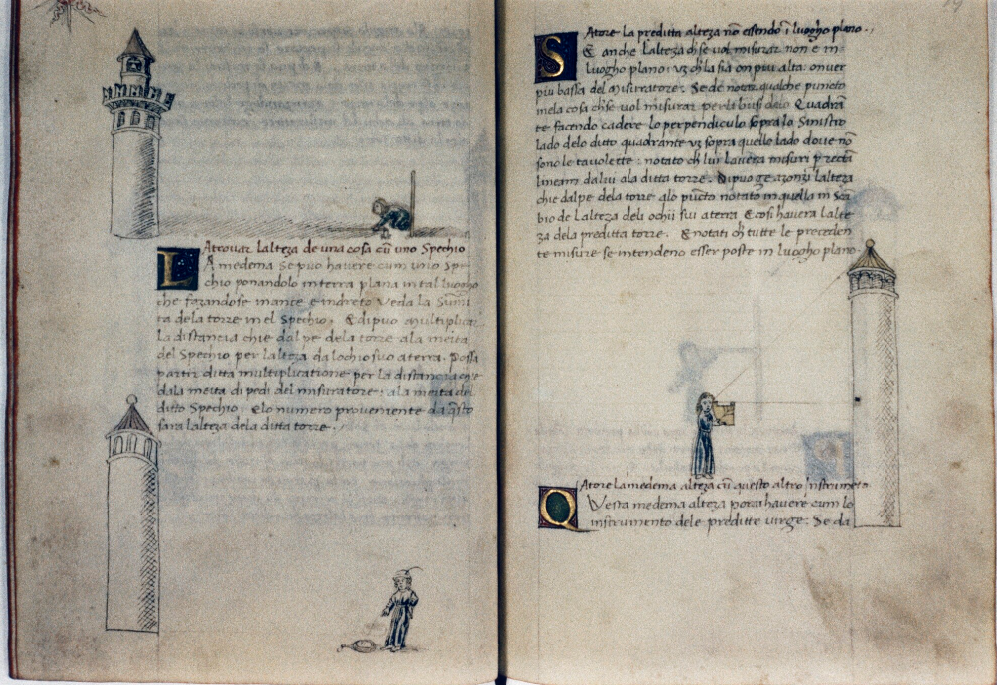 Atrouar lalteza de una cosa cū uno Spechio
LA medema Se puo havere cum uno Spe-
chio ponandolo in terra plana in tal luogho
che fazandose inance e indreto veda la Sūmi
ta dela torre in el Spechio. E dipuo multiplicar
la distancia chie dal pe dela torre ala meita
del Spechio per lalteza da lochio suo a terra. Possa
partir ditta multiplicatione per la distancia che
dala meita di pedi del misuratore: ala meita del
ditto Spechio. Elo numero proveniente da q̄sto
sara lalteza dela ditta torre.
Atore la preditta alteza nō essendo ī luogho plano.
SE anche lalteza chse vol misurar non e in
luogho plano: vz ch la sia on piu alta: on ver
piu bassa del misuratore: Se de notar qualche puncto
in ela cosa chse vol misurar per li busi dalo Quadrā
te facendo cadere lo perpendiculo sopra lo Sinistro
lado delo ditto quadrante vz sopra quello lado dove nō
sono le tavolette: notato ch lui lavera misuri p recta
lineam da lui ala ditta torre. Dipuo ge azonzi lalteza
chie dal pe dela torre alo pūcto notato in quella in
bio de lalteza deli ochii sui a terra E cosi havera lalte
za dela preditta torre. E notati ch tutte le preceden
te misure se intendeno esser poste in luogho plano
Atore la medema alteza cū questo altro Instrumēto
QVesta medema alteza pora havere cum lo
instrumento dele preditte virge: Se da